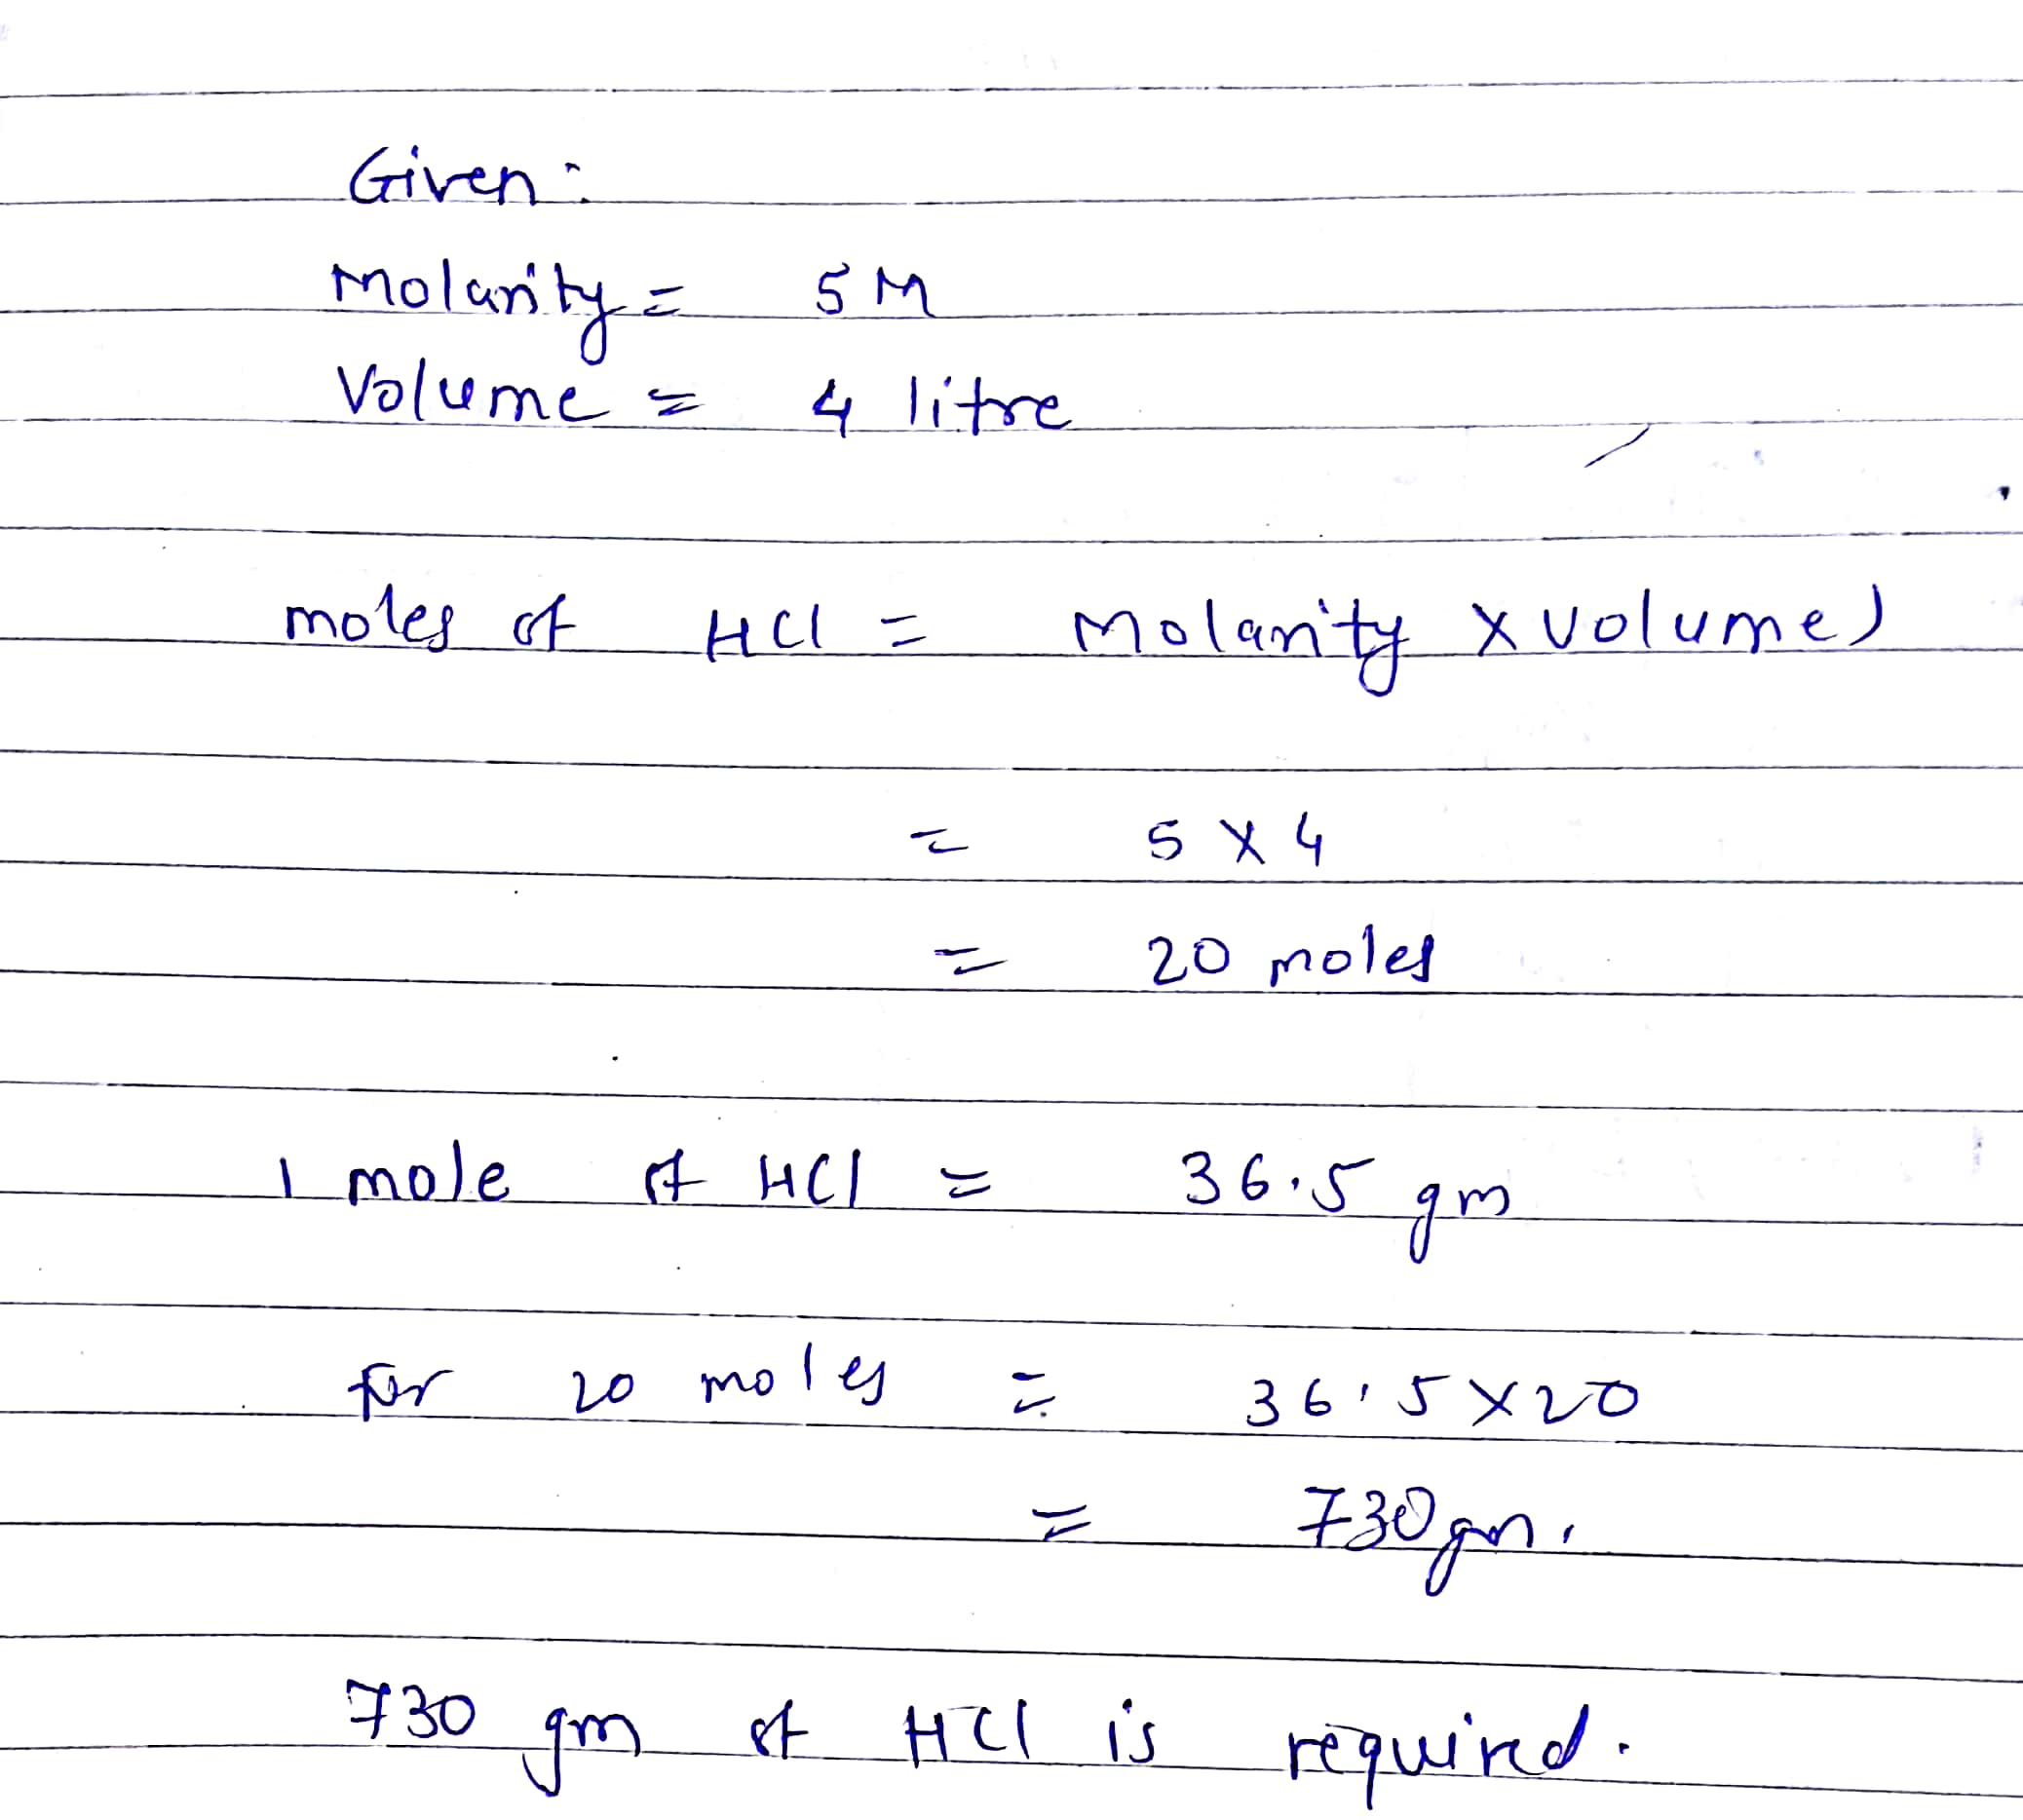 Given:
Molarity = 5 M
Volume = 4 litre
moles of HCl = Molarity x volume)
= 5 x 4
= 20 moles
1 mole of HCl = 36.5 gm
for 20 moles = 36.5 x 20
= 730 gm.
730 gm of HCl is required.